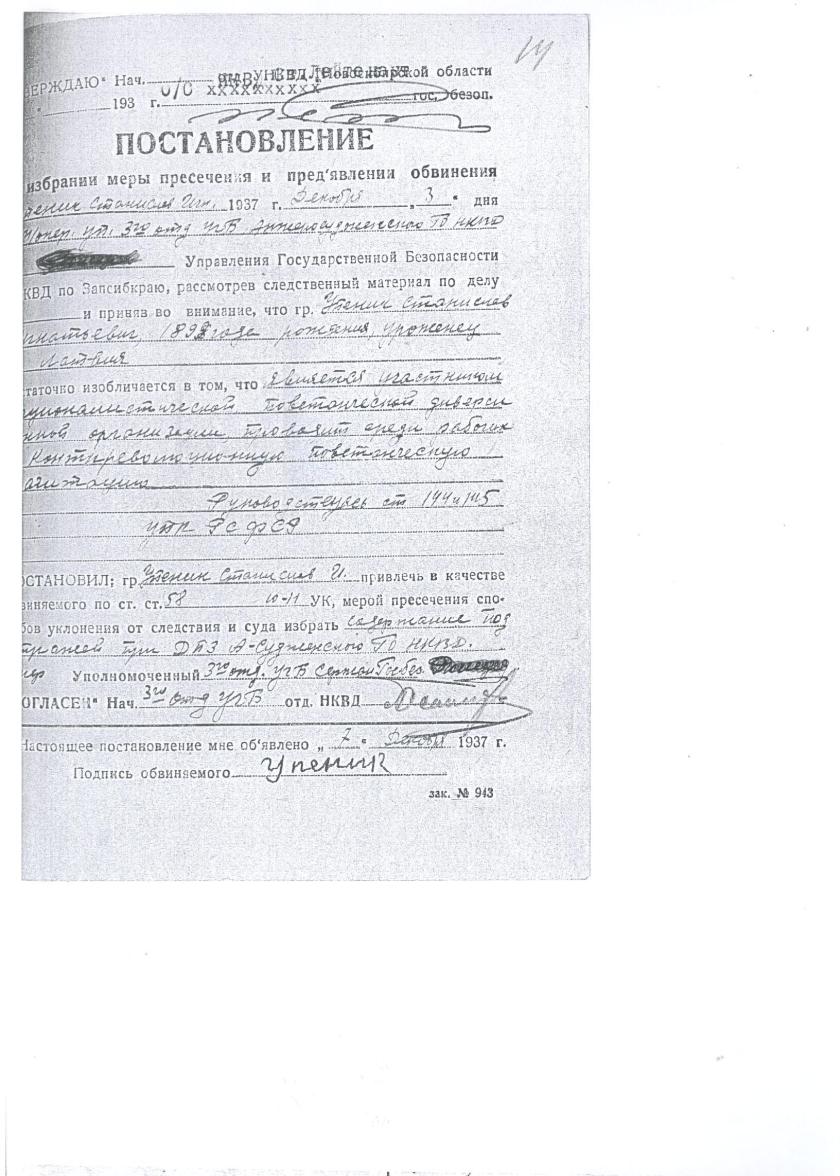 14
ВЕРЖДАЮ" Нач. УНКВД Новосибирской области
193 г. О/С ХХХХХХХХХ гос. безоп.
ПОСТАНОВЛЕНИЕ
избрании меры пресечения и пред'явлении обвинения
Упеник Станислав Игн. 1937 г. Декабря „ 3 " дня
опер. уп. 3го отд УГБ Анжеросудженского ГО НКВД
Управления Государственной Безопасности
КВД по Запсибкраю, рассмотрев следственный материал по делу
и приняв во внимание, что гр. Упеник Станислав
гнатьевич, 1898 года рождения, уроженец
Латвия
таточно изобличается в том, что является участником
ционалистической повстанческой диверси
нной организации, проводит среди рабочих
контрреволюционную повстанческую
агитацию
Руководствуясь ст 144 и 145
УПК РСФСР
ОСТАНОВИЛ; гр. Упеник Станислав И. привлечь в качестве
виняемого по ст. ст. 58 10-11 УК, мерой пресечения спо-
бов уклонения от следствия и суда избрать содержание под
тражей при ДПЗ А-Судженского ГО НКВД.
пер Уполномоченный 3го отд. УГБ Сержант Госбез
ОГЛАСЕН" Нач. 3го отд УГБ отд. НКВД
Настоящее постановление мне об'явлено „ 7 " Декабря 1937 г.
Подпись обвиняемого Упеник
зак. № 943